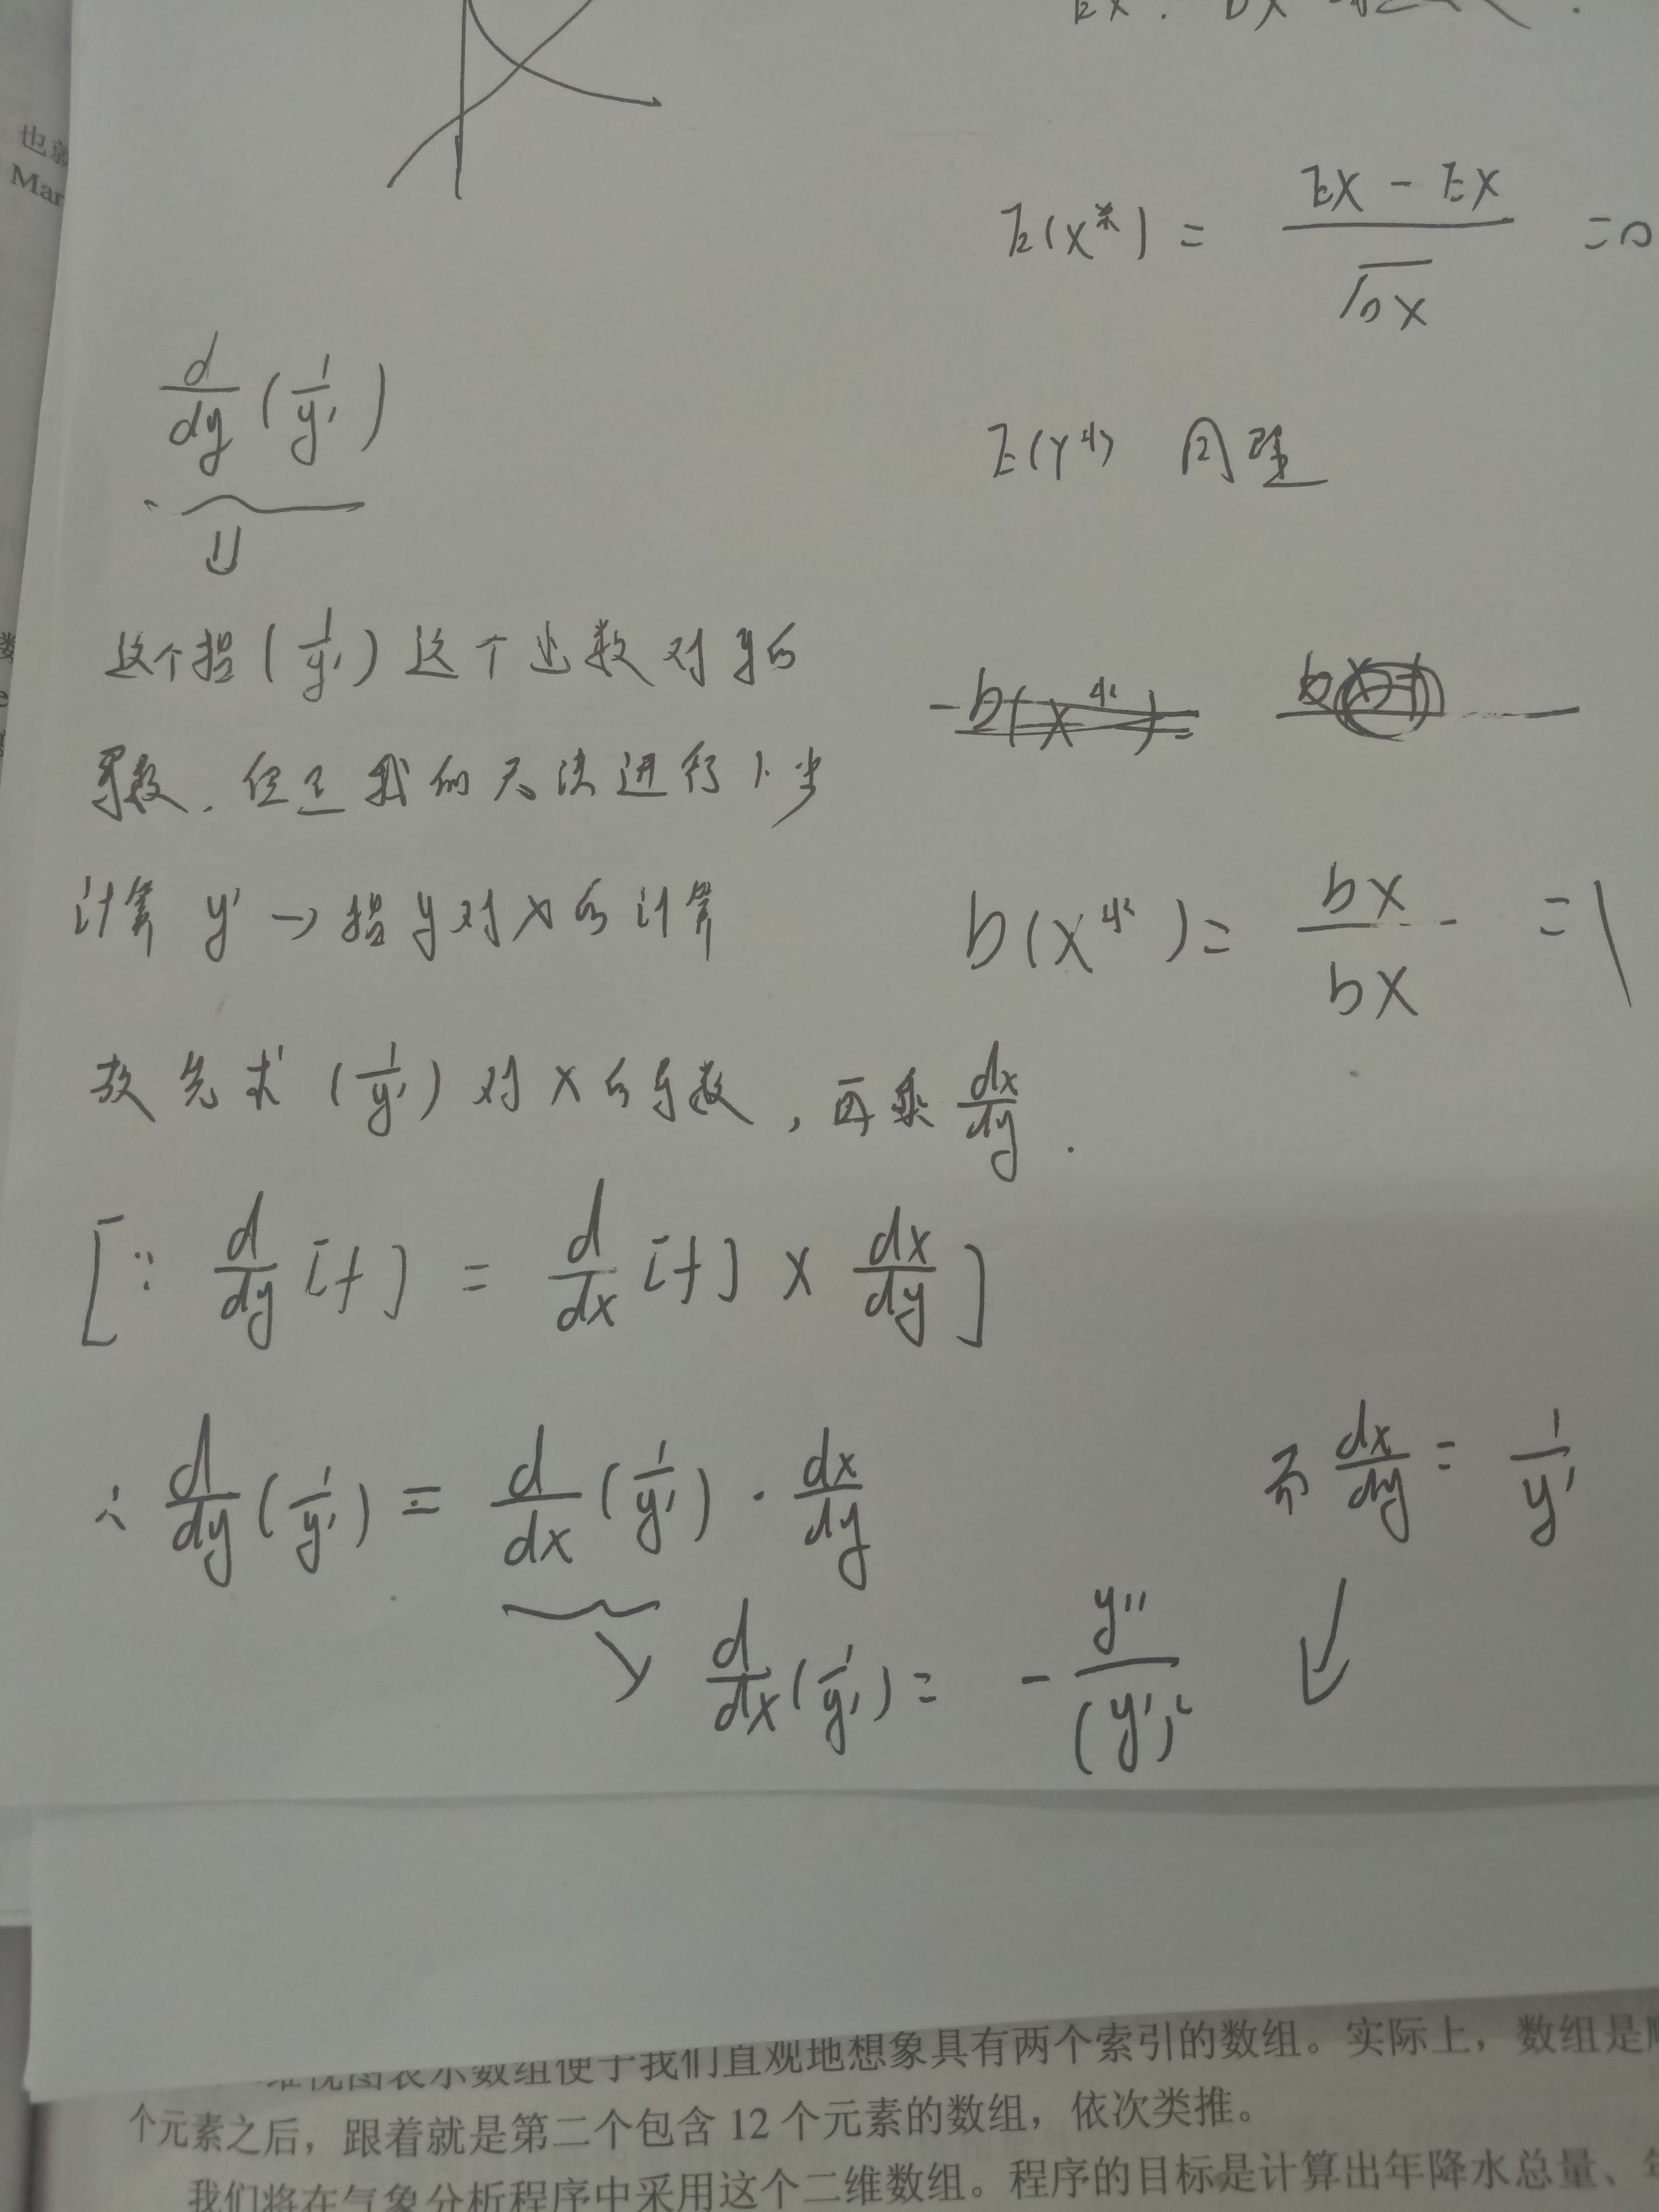 也
Mar
E(X*) = (EX - EX)/√DX = 0
d/dy (1/y')
E(Y*) 同理
⇓
这个指 (1/y') 这个函数对y的
导数. 但是我们无法进行1步
计算 y' → 指y对x的计算
D(X*) = DX/DX = 1
故先求 (1/y') 对x的导数, 再乘 dx/dy .
[∵ d/dy [f] = d/dx [f] × dx/dy ]
∴ d/dy (1/y') = d/dx (1/y') · dx/dy
而 dx/dy = 1/y'
d/dx (1/y') = - y''/(y')²
维视图表示数组便于我们直观地想象具有两个索引的数组。实际上，数组是
个元素之后，跟着就是第二个包含 12 个元素的数组，依次类推。
我们将在气象分析程序中采用这个二维数组。程序的目标是计算出年降水总量、